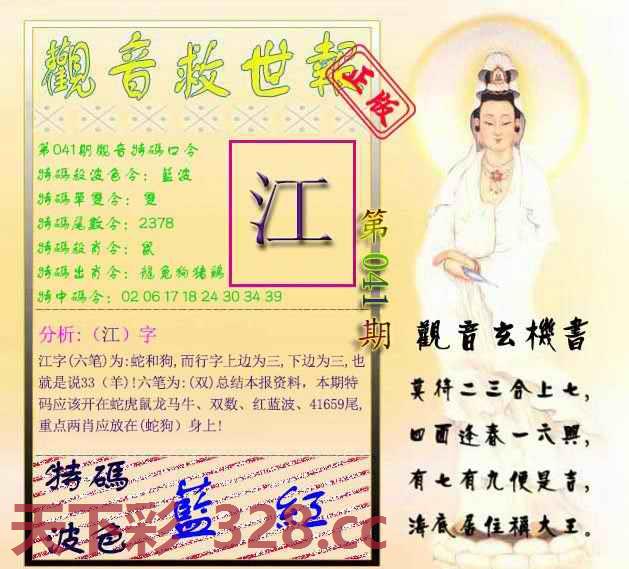 觀音救世報
正版
第041期觀音特碼口令
特碼殺波色令：藍波
特碼單雙令：雙
特碼尾數令：2378
特碼殺肖令：鼠
特碼出肖令：龍兔狗猪鷄
特中碼令：02 06 17 18 24 30 34 39
江
第041期
分析:（江）字
江字(六笔)为:蛇和狗,而行字上边为三,下边为三,也
就是说33（羊)!六笔为:(双)总结本报资料，本期特
码应该开在蛇虎鼠龙马牛、双数、红蓝波、41659尾,
重点两肖应放在(蛇狗）身上!
特碼
波色
藍 紅
觀音玄機書
莫待二三合上七,
四面逢春一六興,
有七有九便是吉,
海底居住稱大王。
天下彩-328.cc